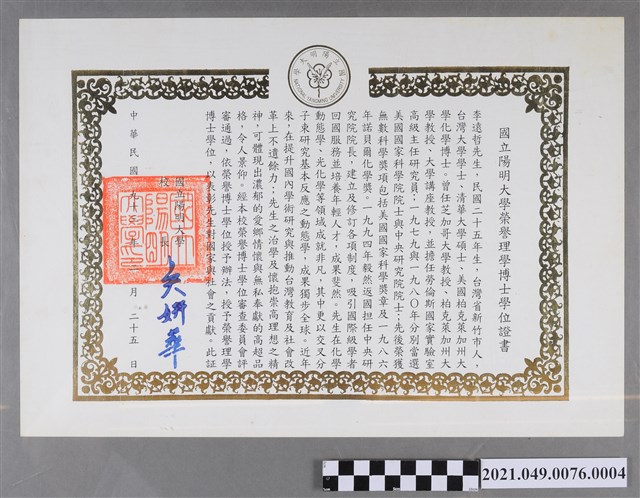 國立陽明大學
NATIONAL YANGMING UNIVERSITY
國立陽明大學榮譽理學博士學位證書
李遠哲先生，民國二十五年生，台灣省新竹市人，
台灣大學學士、清華大學碩士、美國柏克萊加州大
學化學博士。曾任芝加哥大學教授、柏克萊加州大
學教授、大學講座教授，並擔任勞倫斯國家實驗室
高級主任研究員；一九七九與一九八〇年分別當選
美國國家科學院院士與中央研究院院士；先後榮獲
無數科學獎項包括美國國家科學獎章及一九八六
年諾貝爾化學獎。一九九四年毅然返國担任中央研
究院院長，建立及修訂各項制度，吸引國際級學者
回國服務並培養年輕人才，成果斐然。先生在化學
動態學、光化學等領域成就非凡，其中更以交叉分
子束研究基本反應之動態學，成果獨步全球。近年
來，在提升國內學術研究與推動台灣教育及社會改
革上不遺餘力；先生之治學及懷抱崇高理想之精
神，可體現出濃郁的愛鄉情懷與無私奉獻的高超品
格，令人景仰。經本校榮譽博士學位審查委員會評
審通過，依榮譽博士學位授予辦法，授予榮譽理學
博士學位，以表彰先生對國家與社會之貢獻。此証
國立陽明大學
校長
吳妍華
中華民國九十年二月二十五日
2021.049.0076.0004